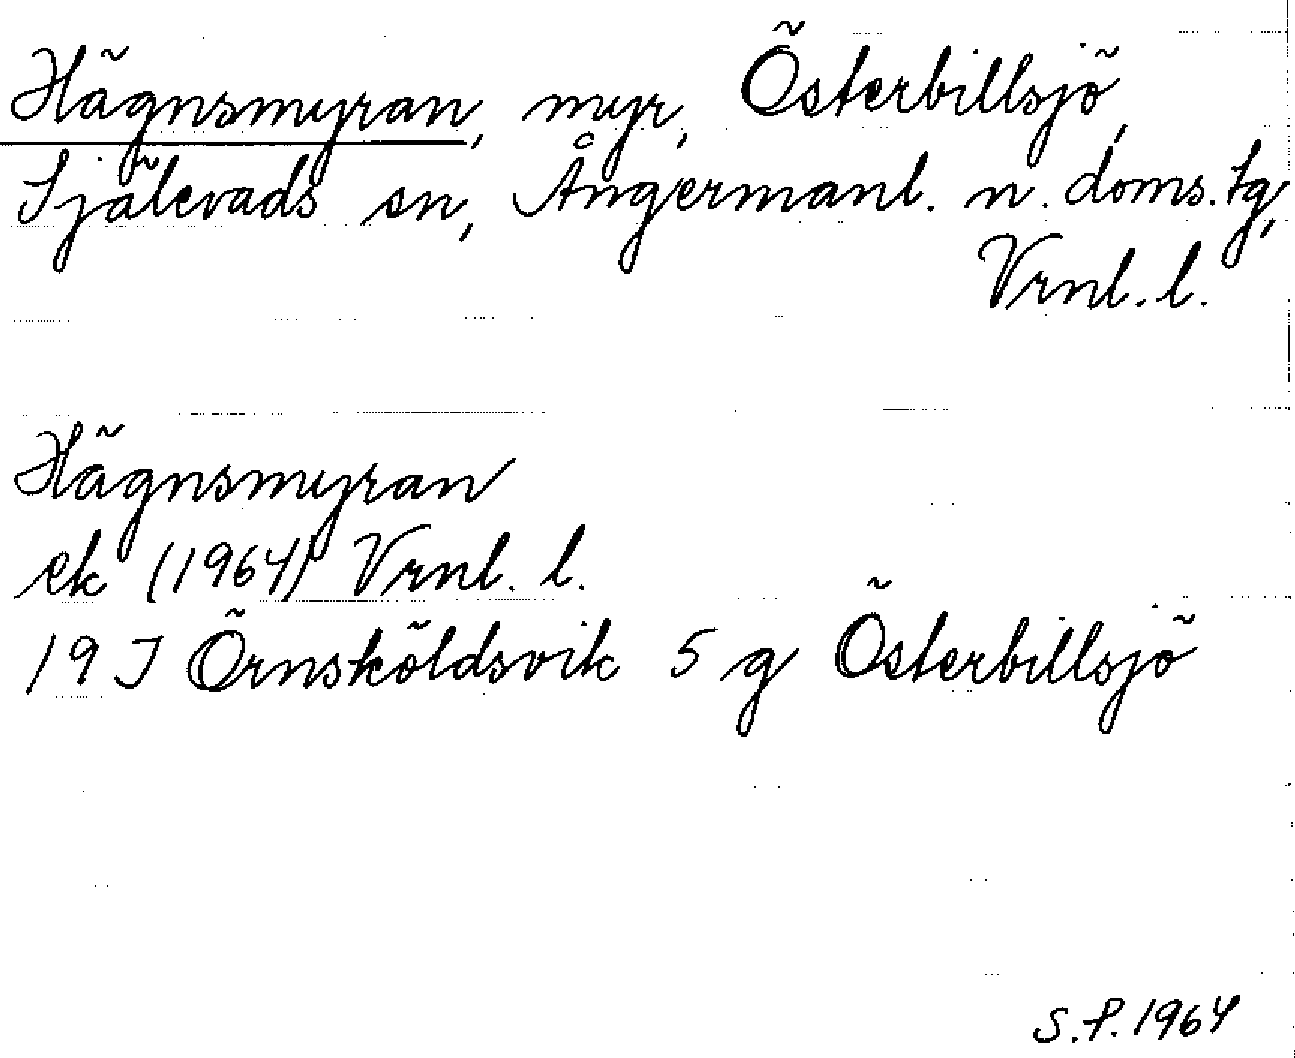 Hägnsmyran, myr, Österbillsjö,
Själevads sn, Ångermanl. n. doms.tg,
Vrnl. l.
Hägnsmyran
ek (1964) Vrnl. l.
19 J Örnsköldsvik 5 g Österbillsjö
S.P. 1964